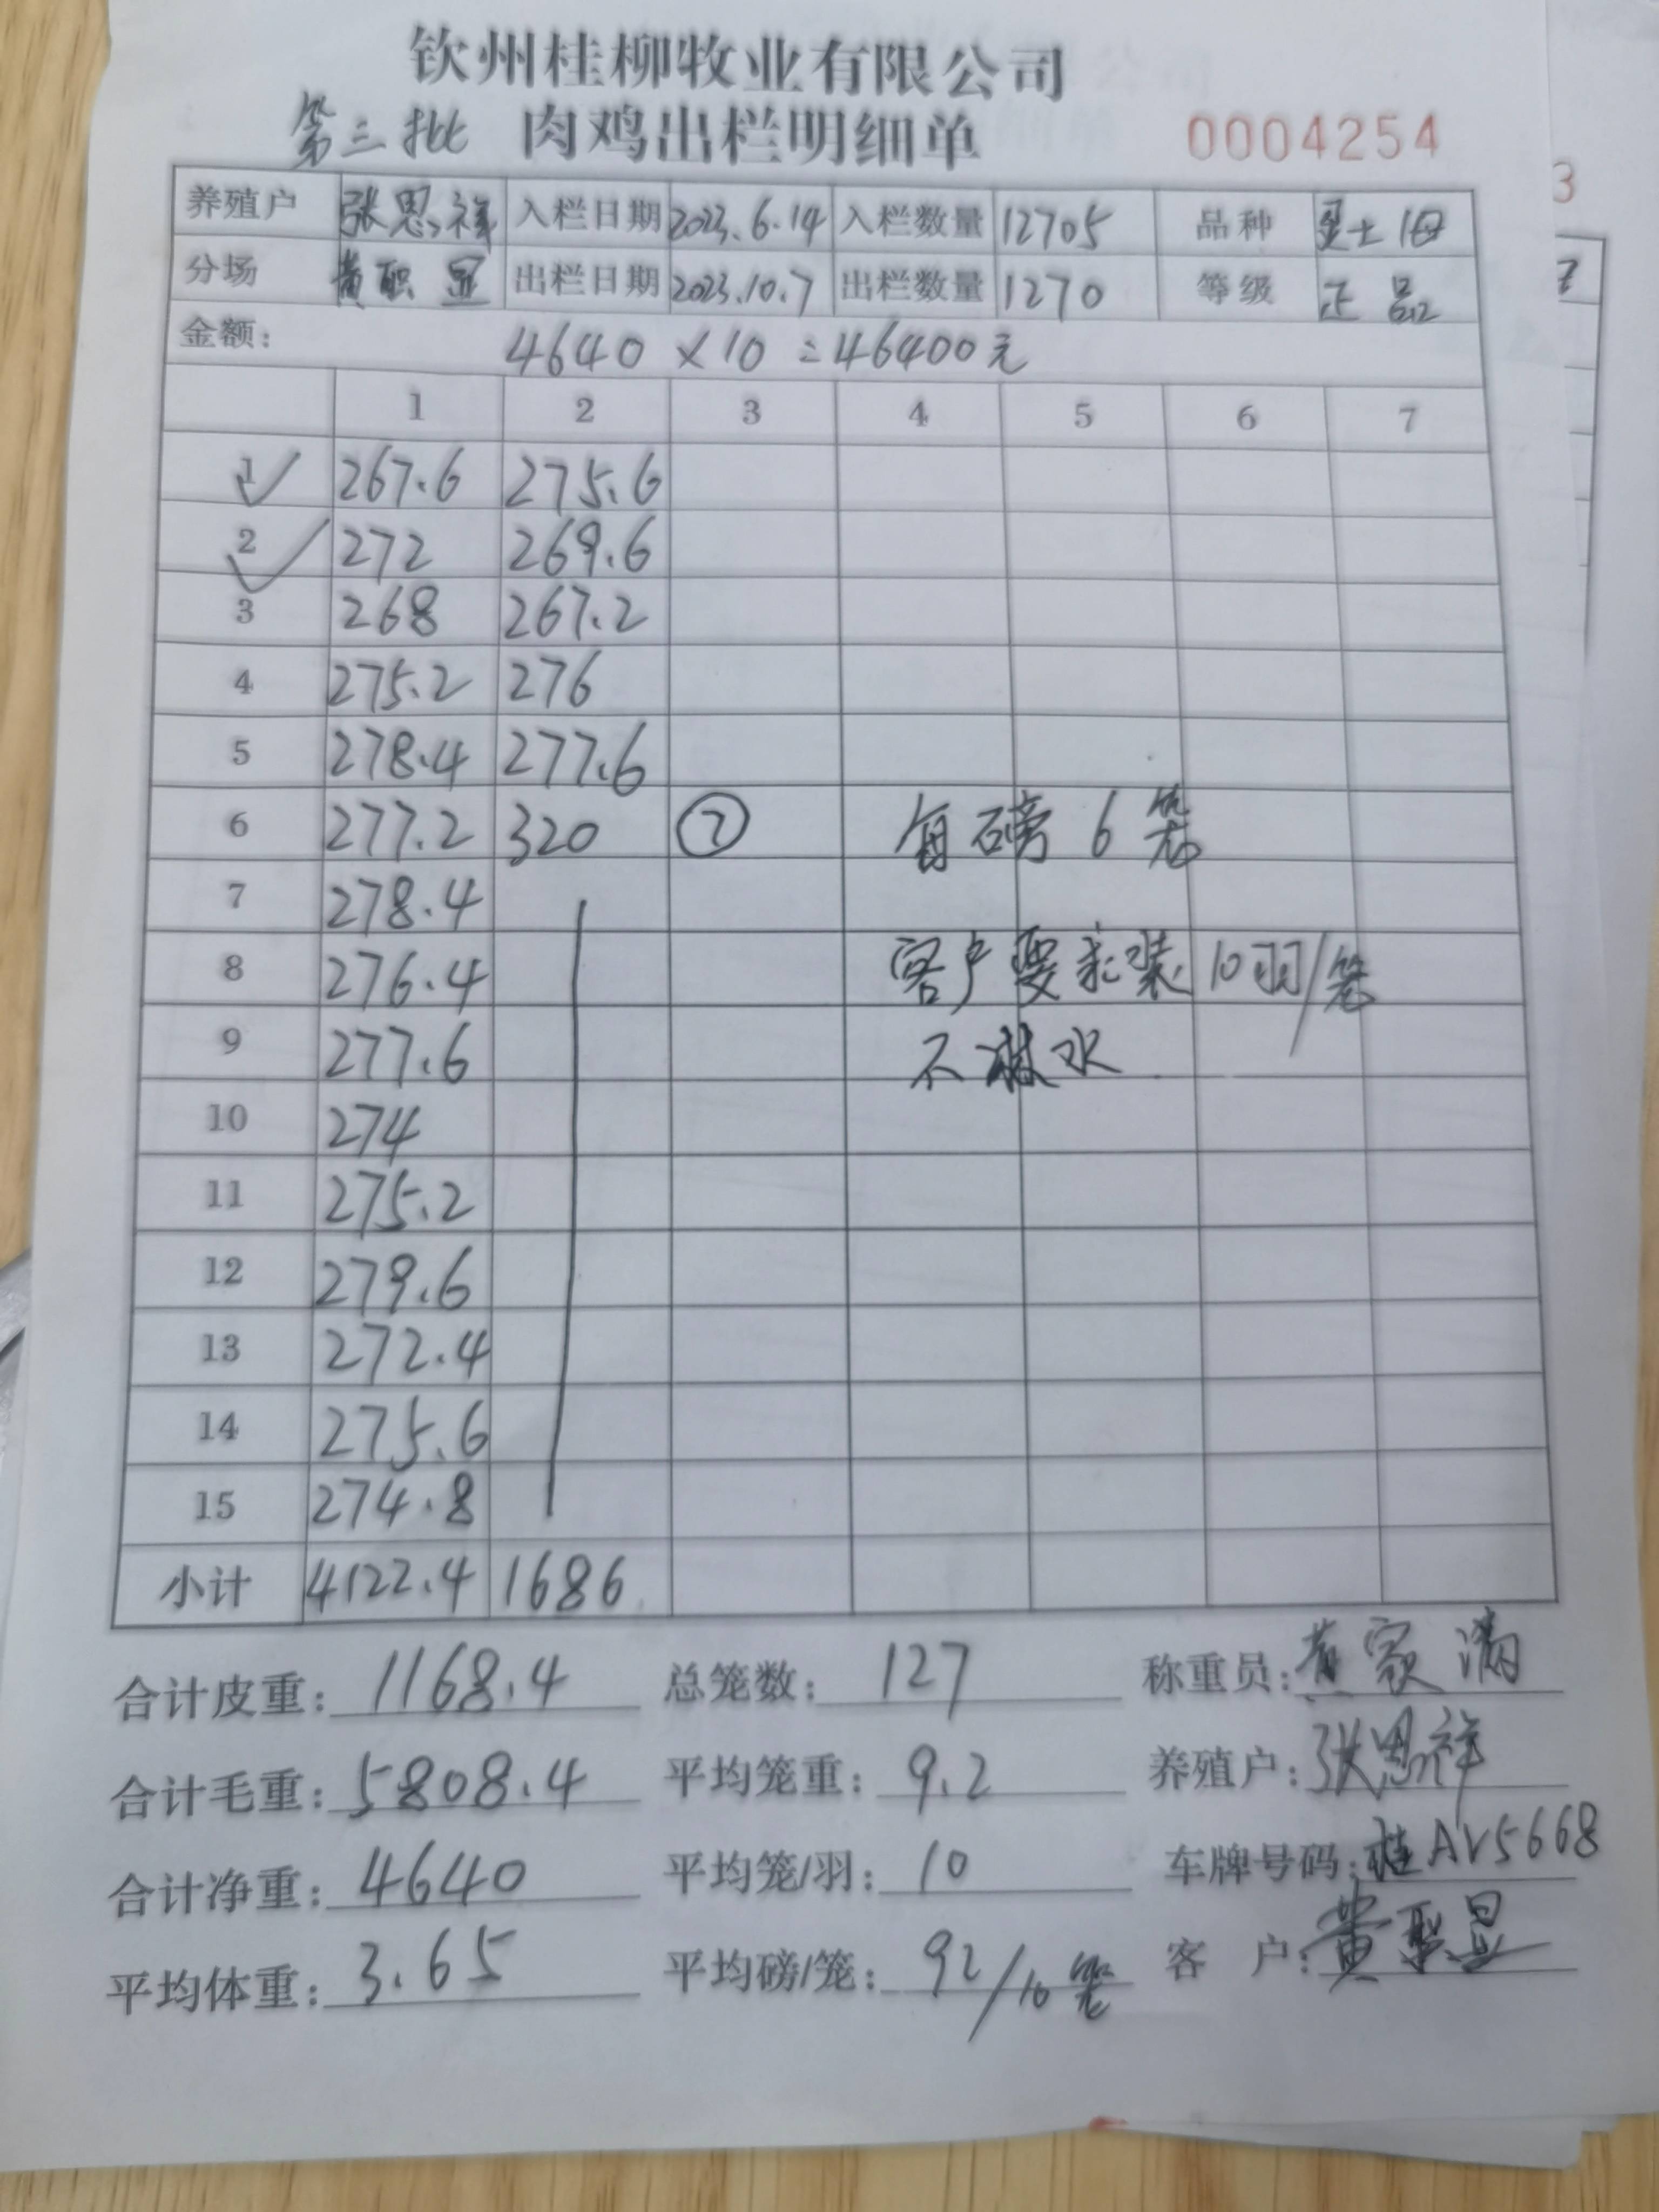 钦州桂柳牧业有限公司
第三批 肉鸡出栏明细单 0004254
养殖户 张思祥 入栏日期 2023.6.14 入栏数量 12705 品种
分场 黄职显 出栏日期 2023.10.7 出栏数量 1270 等级 正品
金额: 4640 × 10 = 46400元
1 2 3 4 5 6 7
1 267.6 275.6
2 272 269.6
3 268 267.2
4 275.2 276
5 278.4 277.6
6 277.2 320 ⑦ 每磅6笼
7 278.4
8 276.4 客户要求装10羽/笼
9 277.6 不淋水
10 274
11 275.2
12 279.6
13 272.4
14 275.6
15 274.8
小计 4122.4 1686
合计皮重: 1168.4 总笼数: 127 称重员: 黄家满
合计毛重: 5808.4 平均笼重: 9.2 养殖户: 张思祥
合计净重: 4640 平均笼/羽: 10 车牌号码: 桂AV5668
平均体重: 3.65 平均磅/笼: 92/10笼 客 户: 黄职显
3